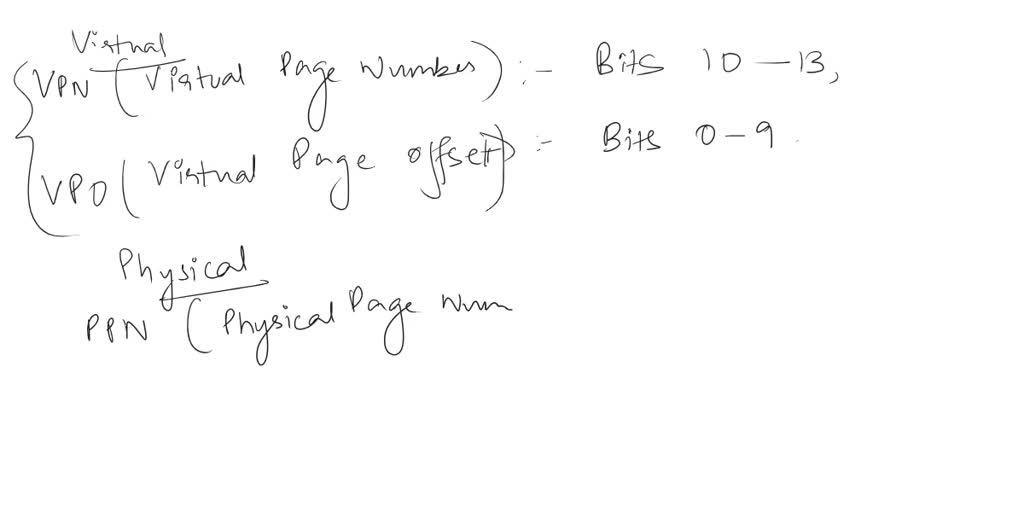 Virtual
VPN (Virtual Page Number) :- Bits 10-13,
VPO (Virtual Page offset) :- Bits 0-9.
Physical
PPN (Physical Page Num